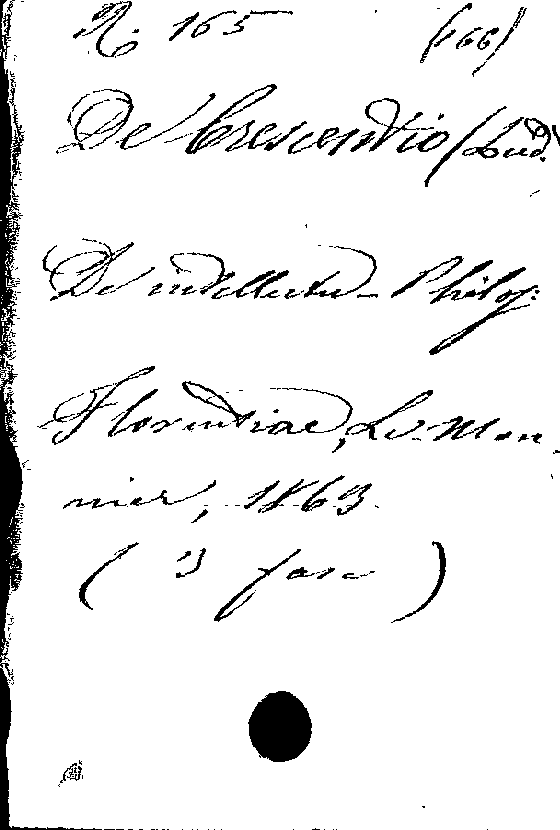 R. 165 (166)
De Crescentio (Lud.
De intellectu - Philos:
Florentiae, Le-Mon-
nier, 1863.
( 3 fasc )